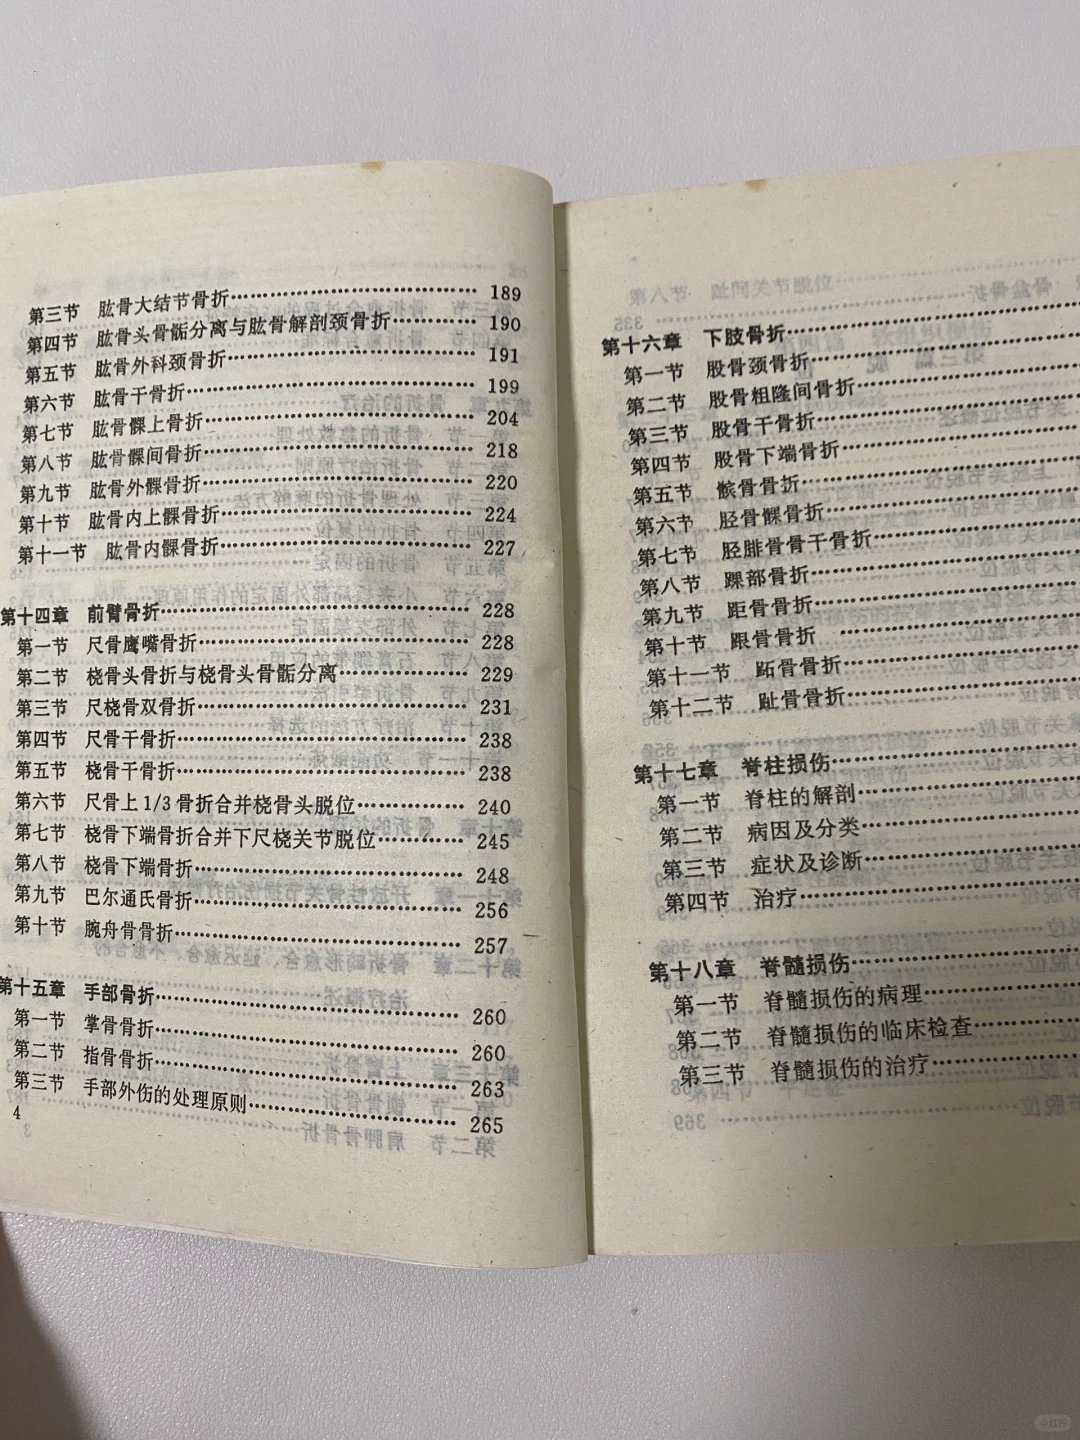 第三节 肱骨大结节骨折……189
第四节 肱骨头骨骺分离与肱骨解剖颈骨折……190
第五节 肱骨外科颈骨折……191
第六节 肱骨干骨折……199
第七节 肱骨髁上骨折……204
第八节 肱骨髁间骨折……218
第九节 肱骨外髁骨折……220
第十节 肱骨内上髁骨折……224
第十一节 肱骨内髁骨折……227
第十四章 前臂骨折……228
第一节 尺骨鹰嘴骨折……228
第二节 桡骨头骨折与桡骨头骨骺分离……229
第三节 尺桡骨双骨折……231
第四节 尺骨干骨折……238
第五节 桡骨干骨折……238
第六节 尺骨上1/3骨折合并桡骨头脱位……240
第七节 桡骨下端骨折合并下尺桡关节脱位……245
第八节 桡骨下端骨折……248
第九节 巴尔通氏骨折……256
第十节 腕舟骨骨折……257
第十五章 手部骨折……260
第一节 掌骨骨折……260
第二节 指骨骨折……263
第三节 手部外伤的处理原则……265
4
第十六章 下肢骨折……
第一节 股骨颈骨折……
第二节 股骨粗隆间骨折……
第三节 股骨干骨折……
第四节 股骨下端骨折……
第五节 髌骨骨折……
第六节 胫骨髁骨折……
第七节 胫腓骨骨干骨折……
第八节 踝部骨折……
第九节 距骨骨折……
第十节 跟骨骨折……
第十一节 跖骨骨折……
第十二节 趾骨骨折……
第十七章 脊柱损伤……
第一节 脊柱的解剖……
第二节 病因及分类……
第三节 症状及诊断……
第四节 治疗……
第十八章 脊髓损伤……
第一节 脊髓损伤的病理……
第二节 脊髓损伤的临床检查……
第三节 脊髓损伤的治疗……
小红书